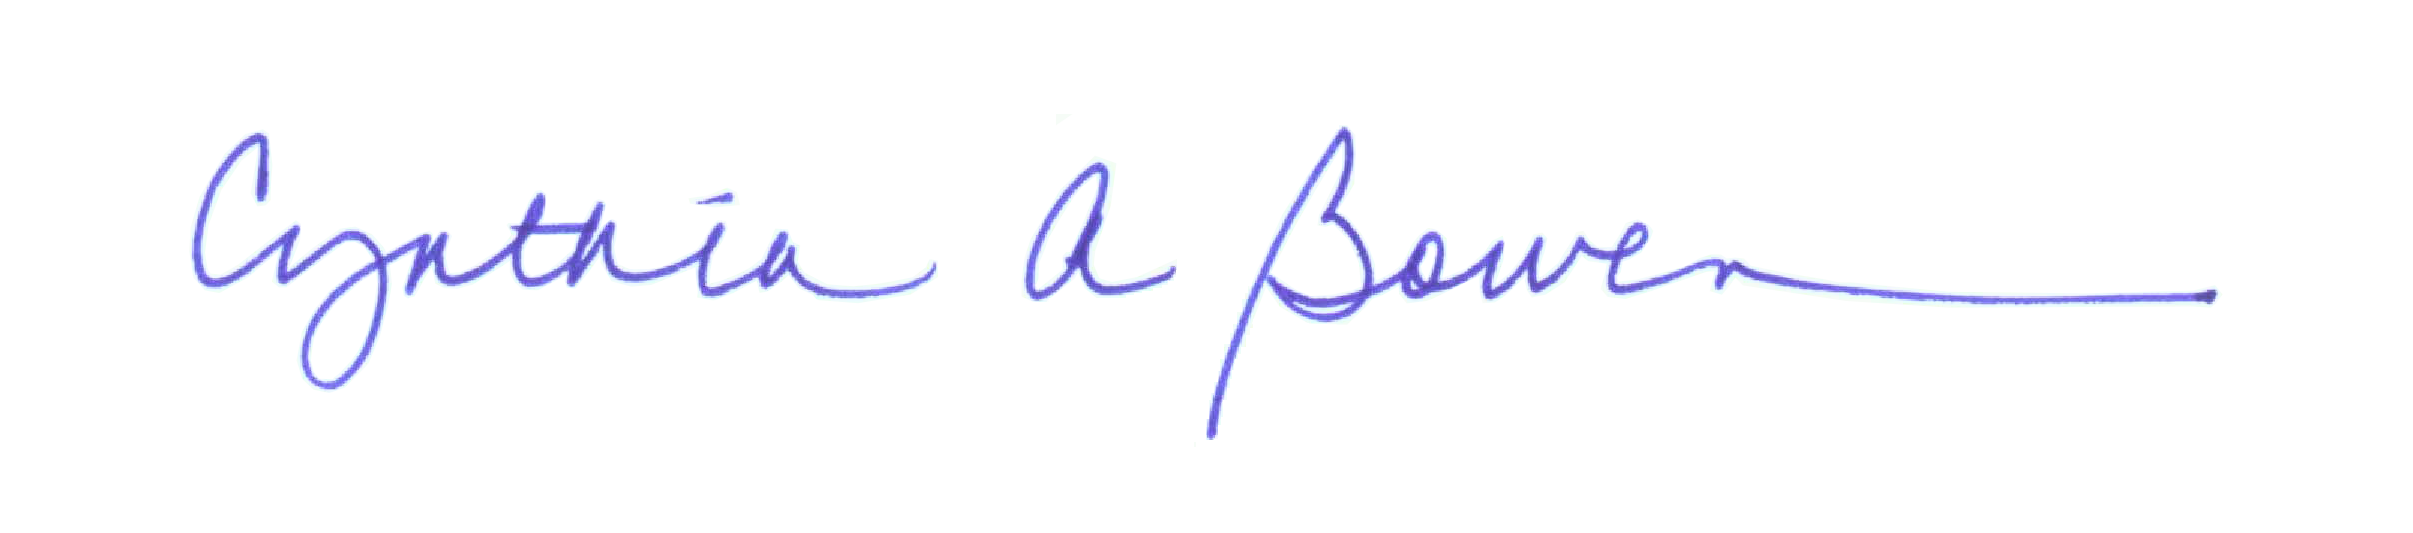 Cynthia A Bowen